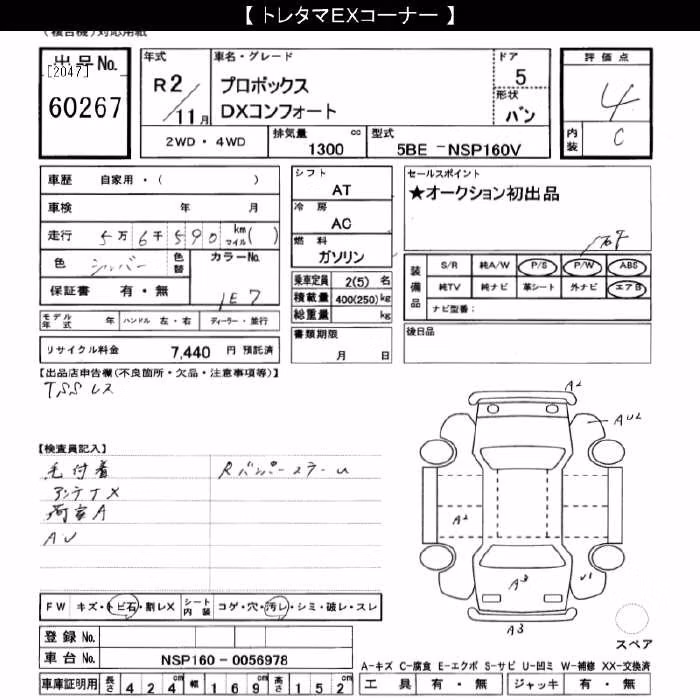 【 トレタマEXコーナー 】
(複合機)対応用紙
出品No.
[2047]
60267
年式
R 2/11月
車名・グレード
プロボックス
DXコンフォート
ドア
5
形状
バン
評価点
4
内装
C
2WD・4WD
排気量 cc
1300
型式
5BE -NSP160V
車歴 自家用・( )
車検 年 月
走行 5万6千590 km マイル( )
色 シルバー
色替
カラーNo.
1E7
保証書 有・無
モデル年式 年 ハンドル 左・右 ディーラー・並行
リサイクル料金 7,440 円 預託済
シフト
AT
冷房
AC
燃料
ガソリン
乗車定員 2(5) 名
積載量 400(250)kg
総重量 kg
書類期限
月 日
セールスポイント
★オークション初出品
装備品
S/R 純A/W P/S P/W ABS
純TV 純ナビ 革シート 外ナビ エアB
ナビ型番:
後日品
【出品店申告欄(不良箇所・欠品・注意事項等)】
TSSレス
【検査員記入】
毛付着
アンテナX
荷室A
AU
RバンパーステーU
FW キズ・トビ石・割レX
シート内装 コゲ・穴・汚レ・シミ・破レ・スレ
登録No.
車台No. NSP160-0056978
車庫証明用 長さ 424cm 幅 169cm 高さ 152cm
A2
AU2
A2
A3
U1
A3
スペア
A-キズ C-腐食 E-エクボ S-サビ U-凹ミ W-補修 XX-交換済
工具 有・無 ジャッキ 有・無